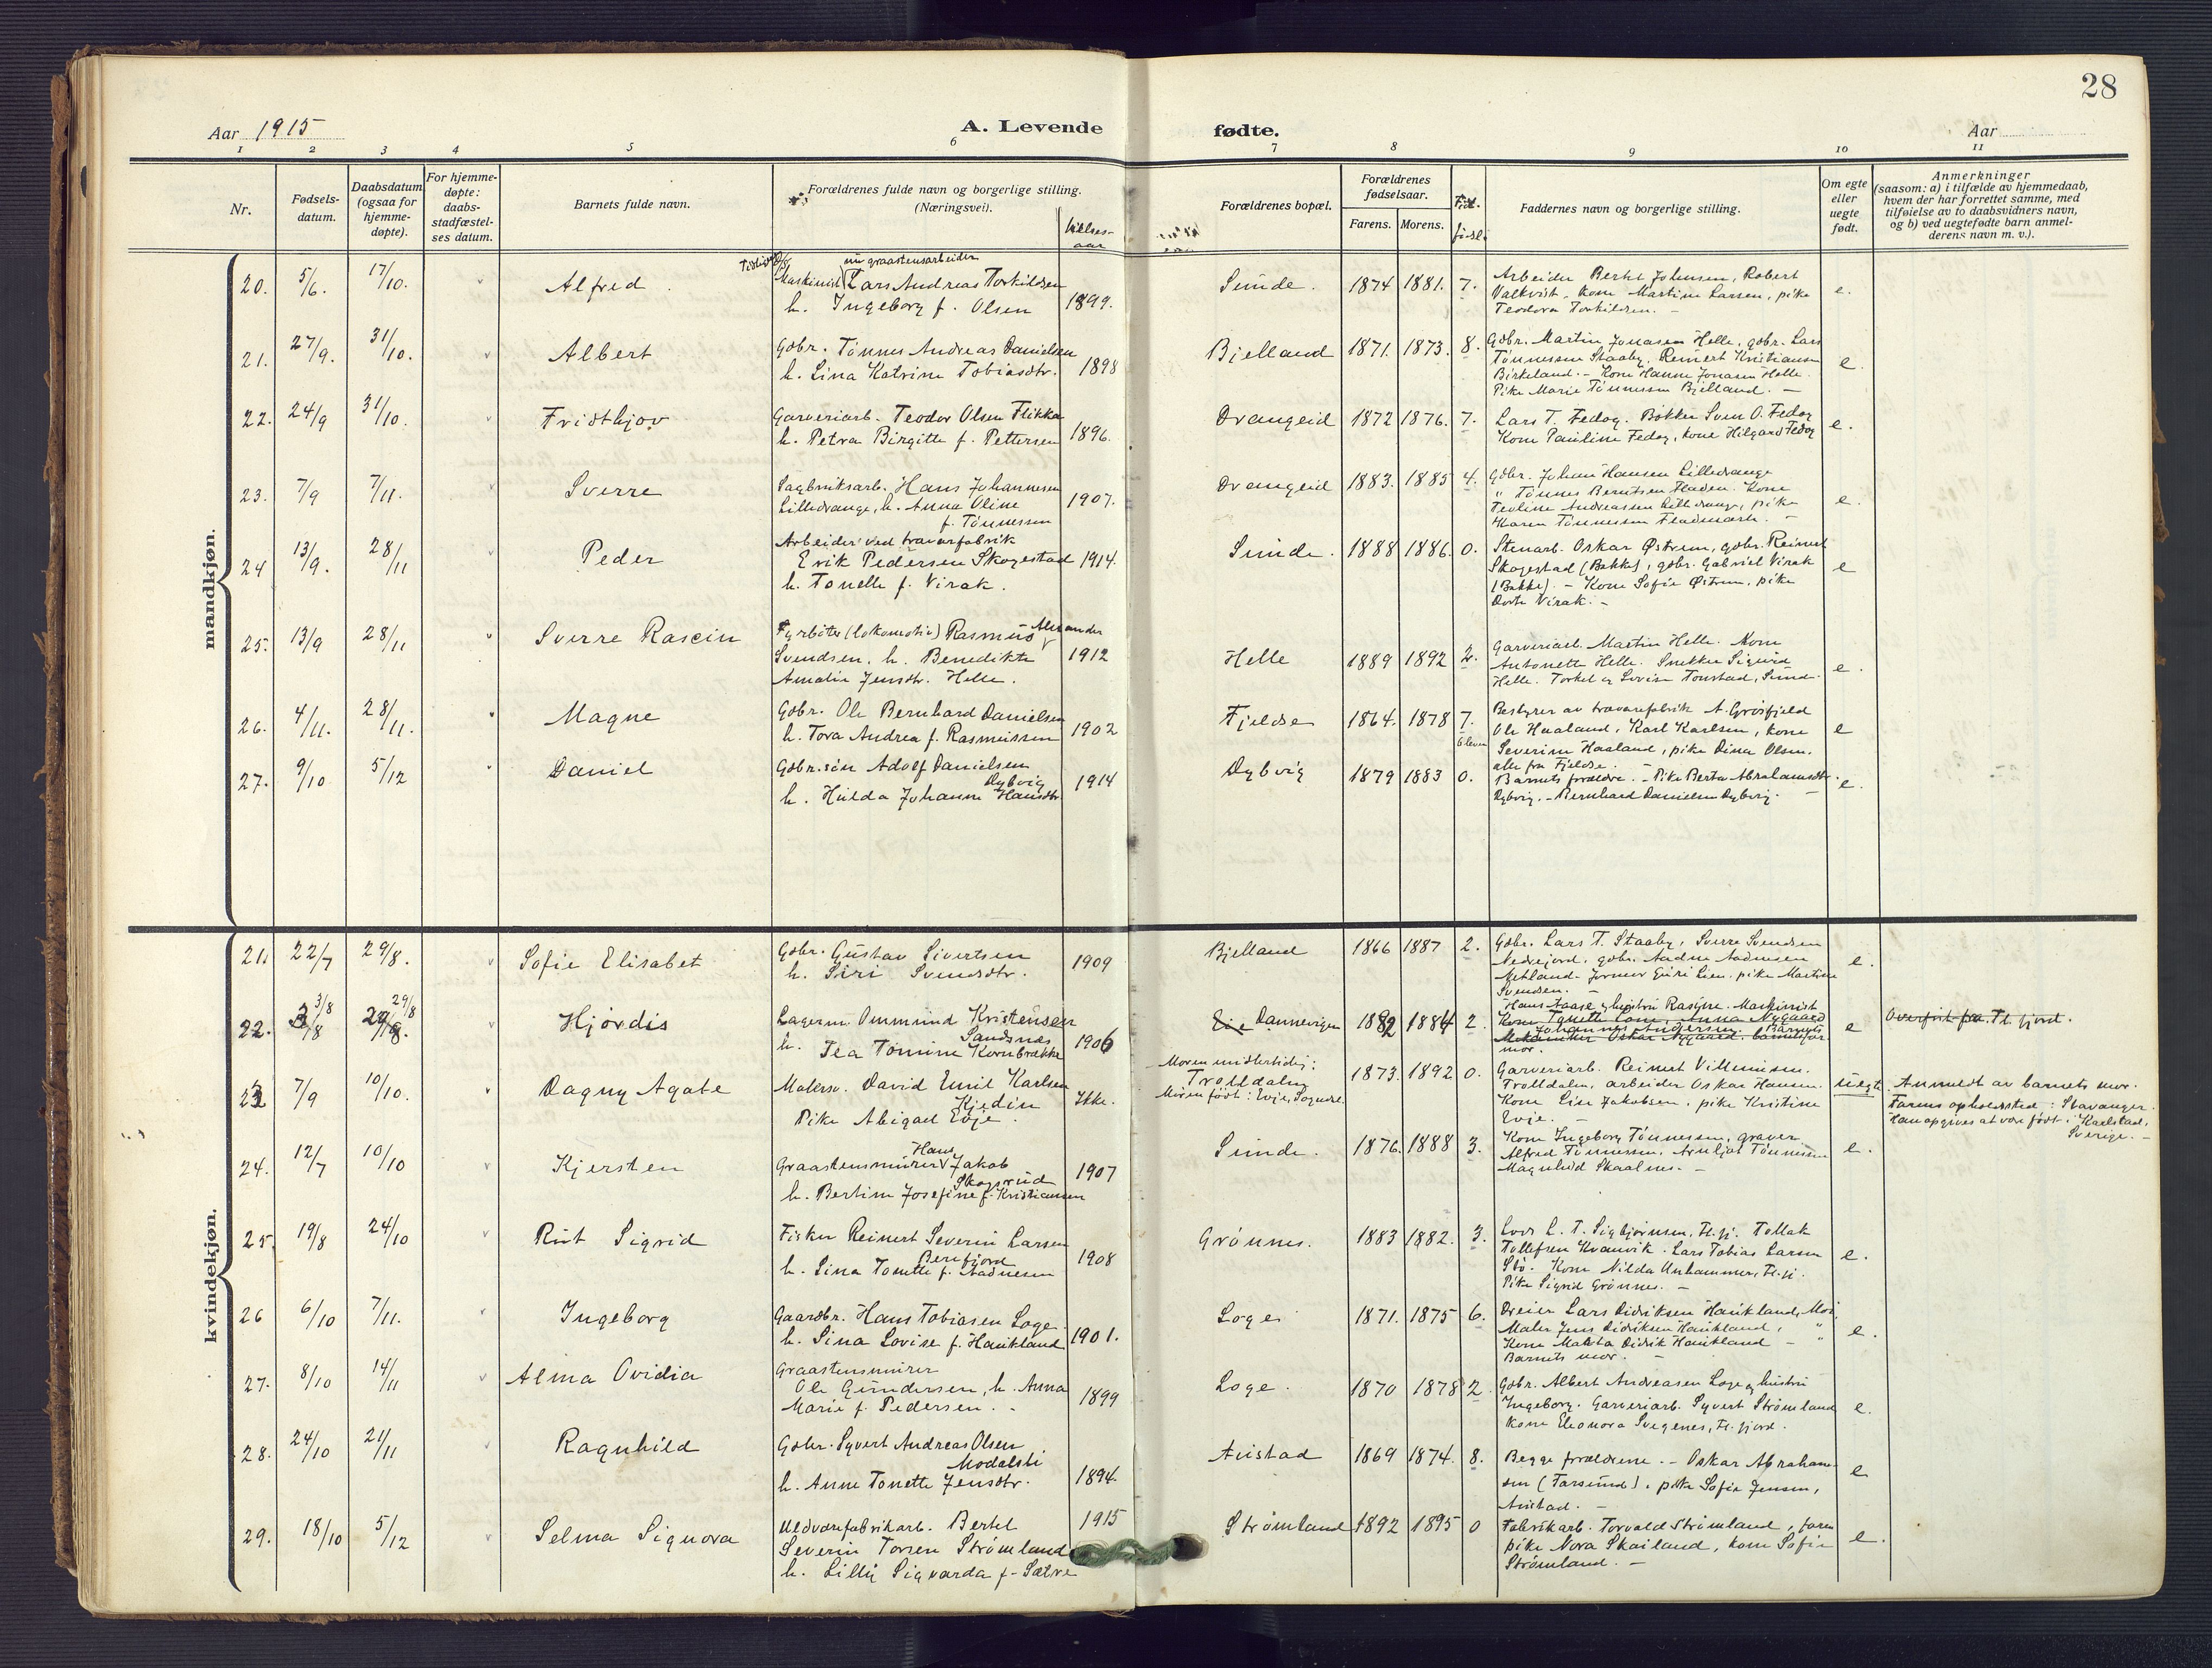 28
Aar 1915
A. Levende
fødte.
Aar
1 2 3 4 5 6 7 8 9 10 11
Nr.
Fødsels-
datum.
Daabsdatum
(ogsaa for
hjemme-
døpte).
For hjemme-
døpte:
daabs-
stadfæstel-
ses datum.
Barnets fulde navn.
Forældrenes fulde navn og borgerlige stilling.
(Næringsvei).
Vielses-
aar
Forældrenes bopæl.
Forældrenes
fødselsaar.
Farens. Morens.
Faddernes navn og borgerlige stilling.
Om egte
eller
uegte
født.
Anmerkninger
(saasom: a) i tilfælde av hjemmedaab,
hvem der har forrettet samme, med
tilføielse av to daabsvidners navn,
og b) ved uegtefødte barn anmel-
derens navn m. v.).
mandkjøn.
20. 5/6. 17/10. Alfred
nu graastensarbeider
Maskinist Lars Andreas Torkildsen
h. Ingeborg f. Olsen 1899.
Sunde. 1874 1881. 7.
Arbeider Bertel Johnsen, Robert
Valkvist. Kone Martine Larsen, pike
Teodora Torkildsen. –
e.
21. 27/9. 31/10. Albert
Gdbr. Tønnes Andreas Danielsen
h. Lina Katrine Tobiasdtr. 1898
Bjelland 1871. 1873. 8.
Gdbr. Martin Jonasen Helle, gdbr. Lars
Tønnessen Staaby. Reinert Kristiansen
Birkeland. – Kone Hanne Jonasen Helle.
Pike Marie Tønnessen Bjelland. –
e.
22. 24/9 31/10. Fridthjov
Garveriarb. Teodor Olsen Flikka
h. Petra Birgitte f. Pettersen 1896.
Drangeid 1872 1876. 7.
Lars T. Fedog. Bøkker Sven O. Fedog
Kone Pauline Fedog, kone Hilgard Fedog
e.
23. 7/9 7/11. Sverre
Sagbruksarb. Hans Johannesen
Lilledrange, h. Anna Oline
f. Tønnessen 1907.
Drangeid 1883. 1885 4.
Gdbr. Johan Hansen Lilledrange
" Tønnes Berntsen Fladen. Kone
Teoline Andreassen Lilledrange, pike
Karen Tønnessen Fladmark. –
e.
24 13/9. 28/11 Peder
Arbeider ved trævarefabrik
Erik Pedersen Skogestad 1914.
h. Tonelle f. Virak.
Sunde. 1888 1886. 0.
Stenarb. Oskar Østrem, gdbr. Reinert
Skogestad (Bakke), gdbr. Gabriel Virak
(Bakke). – Kone Sofie Østrem, pike
Dorte Virak. –
e
25. 13/9 28/11 Sverre Rasein
Fyrbøter (lokomotiv) Rasmus Alexander
Svendsen, h. Benedikte 1912
Amalie Jensdtr. Helle.
Helle 1889 1892 2.
Garveriarb. Martin Helle. Kone
Antonette Helle. Snekker Sigurd
Helle. Torkel og Lovise Tonstad, Sunde.
e.
26. 4/11. 28/11. Magne
Gdbr. Ole Bernhard Danielsen
h. Tora Andrea f. Rasmussen 1902
Fjeldse 1864. 1878 7.
Bestyrer av trævarefabrik A. Grøsfjeld
Ole Haaland, Karl Karlsen, kone
Severine Haaland, pike Dina Olsen.
alle fra Fjeldse. –
e
27. 9/10 5/12 Daniel
Gdbr.søn Adolf Danielsen
Dybvig
h. Hulda Johanne Hansdtr. 1914
Dybvig 1879 1883 0.
Barnets forældre. – Pike Berta Abrahamsdtr.
Dybvig. – Bernhard Danielsen Dybvig. –
e.
kvindekjøn.
21. 22/7 29/8. Sofie Elisabet
Gdbr. Gustav Sivertsen
h. Siri Svendsdtr. 1909
Bjelland 1866 1887 2.
Gdbr. Lars T. Staaby, Sverre Svendsen
Nedrejord, gdbr. Aadne Aadnesen
Netland. Jormor Guri Lien. pike Martine
Svendsen. –
e.
22. 3/8 29/8 Hjørdis
Lagerm. Ommund Kristensen
Sandsnæs
h. Tea Tomine Kornbrække 1906
Eie Dannevigen 1882 1884 2.
Hans Aase og hustru Rasyne. Maskinist
Johannes Andersen. Barnets
mor.
e
Overført fra Fl. fjord.
23 7/9 10/10. Dagny Agate
Malersv. David Emil Karlsen
Kjedin
Pike Abigael Evje. Ikke.
Moren midlertidig:
Trolldalen
Moren født: Evje, Sogndal
1873. 1892 0.
Garveriarb. Reinert Villumsen.
Trolldalen, arbeider Oskar Hansen.
Kone Lise Jakobsen. pike Kristine
Evje. –
uegte.
Anmeldt av barnets mor.
Farens opholdssted: Stavanger.
Han opgives at være født i Karlstad,
Sverige. –
24. 12/7 10/10 Kjersten
Hans
Graastensmurer Jakob
Skogsrud 1907
h. Bertine Josefine f. Kristiansen
Sunde. 1876. 1888 3.
Kone Ingeborg Tønnessen, graver
Alfred Tønnessen, Arnljot Tønnessen
Magnhild Skaalnes. –
e.
25. 19/8 24/10 Rut Sigrid
Fisker Reinert Severin Larsen
Berefjord
h. Lina Tonette f. Aadnesen 1908
Grønnes. 1883 1882. 3.
Lods L. T. Sigbjørnsen, Fl.fj. Tollak
Tollefsen Kvanvik. Lars Tobias Larsen
Stø. Kone Nilda Unhammer, Fl.fj.
Pike Sigrid Grønnes. –
e.
26 6/10 7/11. Ingeborg
Gaardbr. Hans Tobiasen Loge.
h. Sina Lovise f. Haukland 1901.
Loge 1871. 1875 6.
Dreier Lars Didriksen Haukland, Moi
Maler Jens Didriksen Haukland, "
Kone Malita Didrik Haukland – "
Barnets mor. –
e.
27. 8/10 14/11 Alma Ovidia
Graastensmurer
Ole Gundersen, h. Anna
Marie f. Pedersen. 1899
Loge. 1870 1878 2.
Gdbr. Albert Andreasen Loge og hustru
Ingeborg. Garveriarb. Syvert Strømland
kone Eleonora Svegenes, Fl. fjord.
e.
28. 24/10 21/11 Ragnhild
Gdbr. Syvert Andreas Olsen
Modalsli
h. Anne Tonette Jensdtr. 1894.
Austad 1869 1874. 8.
Begge forældrene. – Oskar Abraham-
sen (Farsund), pike Sofie Jensen,
Austad. –
e
29. 18/10 5/12 Selma Signora
Uldvarefabrikarb. Bertel 1915
Severin Torsen Strømland
h. Lilly Sigvarda f. Sætre
Strømland 1892 1895 0
Fabrikarb. Torvald Strømland, faren
pike Nora Skailand, kone Sofie
Strømland. –
e.